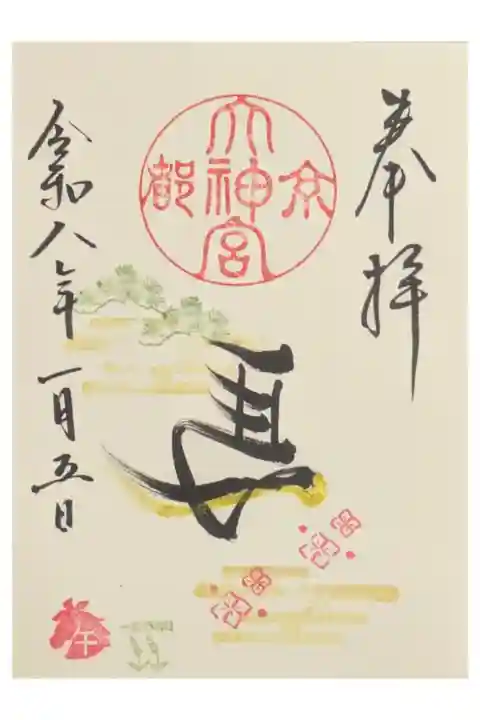 奉拝
京都
大神宮
馬
令和八年一月五日
午